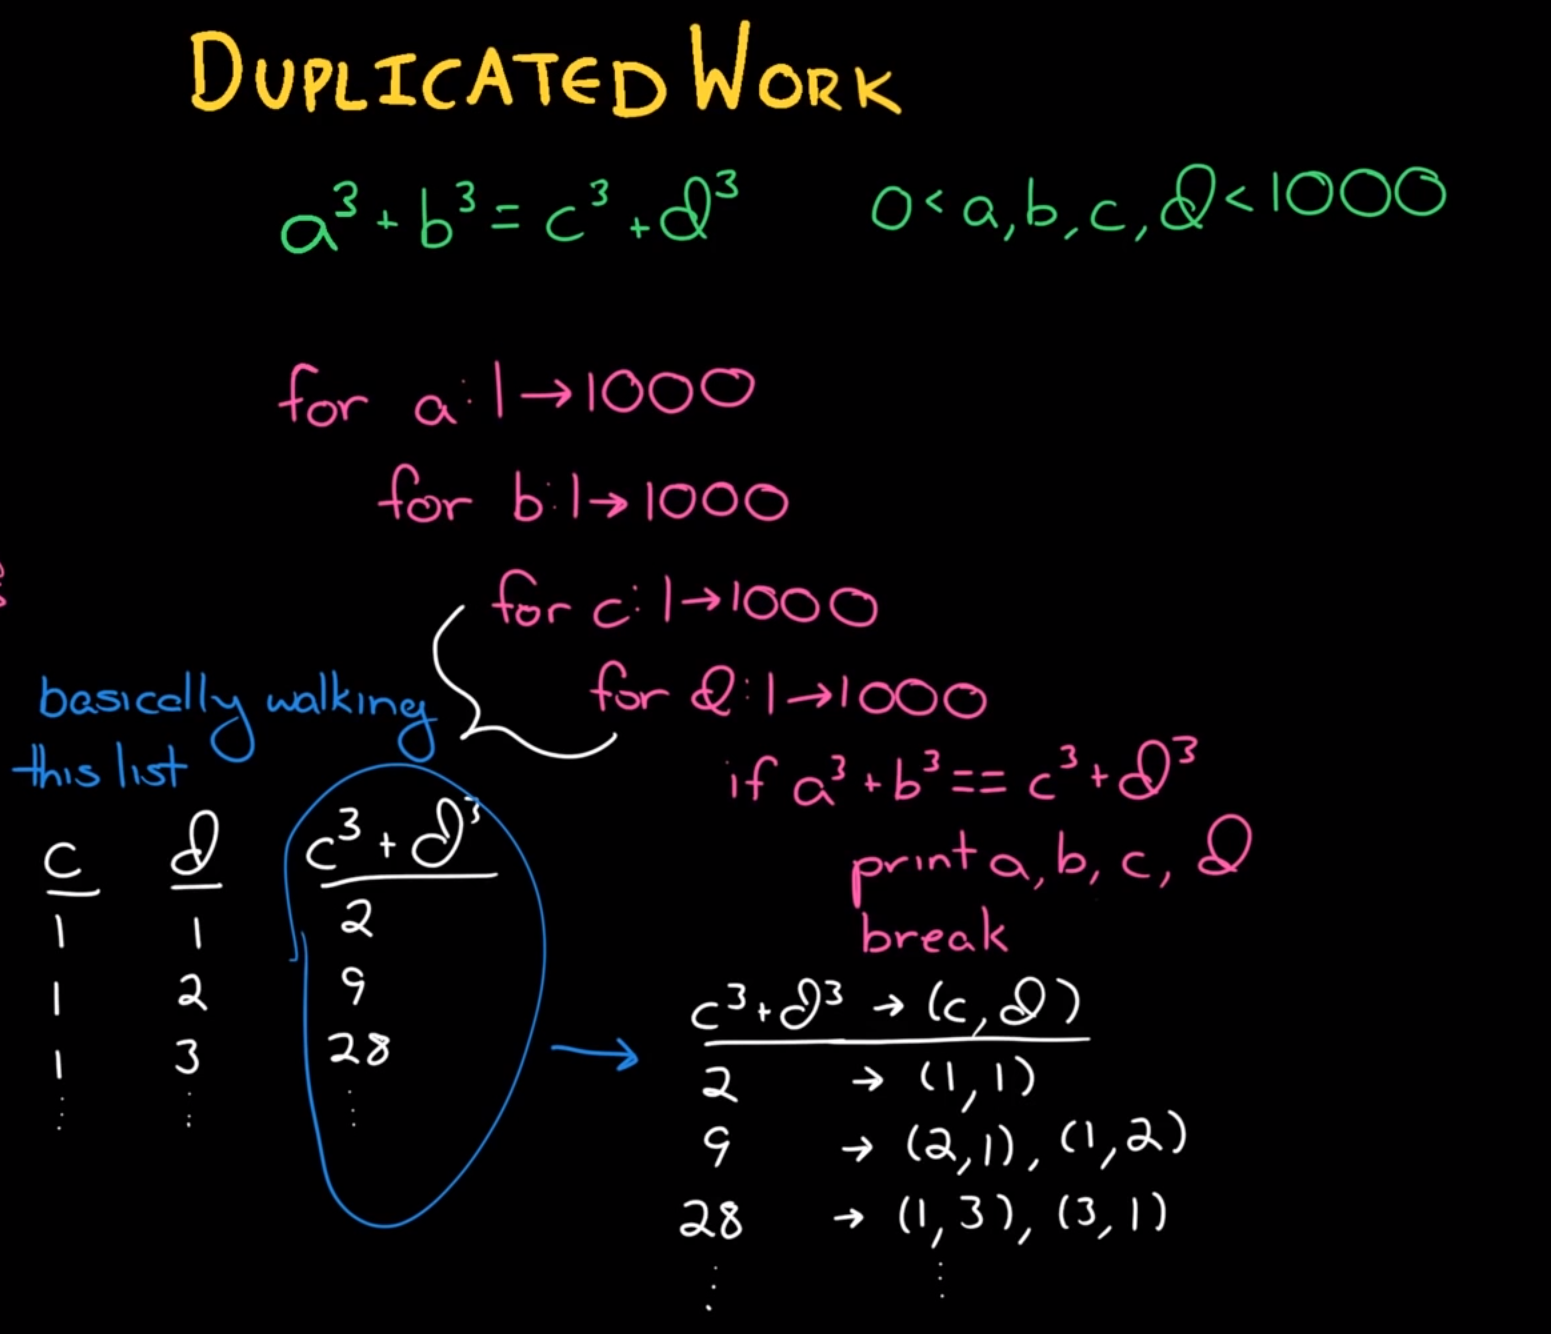 DUPLICATED WORK
a³ + b³ = c³ + d³ 0 < a, b, c, d < 1000
for a: 1 → 1000
for b: 1 → 1000
for c: 1 → 1000
for d: 1 → 1000
if a³ + b³ == c³ + d³
print a, b, c, d
break
basically walking
this list
c d c³ + d³
1 1 2
1 2 9
1 3 28
⋮ ⋮ ⋮
c³ + d³ → (c, d)
2 → (1, 1)
9 → (2, 1), (1, 2)
28 → (1, 3), (3, 1)
⋮ ⋮